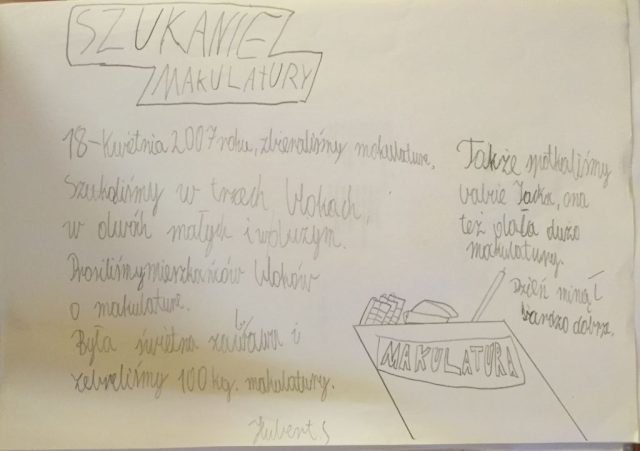 SZUKANIE
MAKULATURY
18-Kwietnia 2007 roku, zbieraliśmy makulature,
Szukaliśmy w trzech blokach,
w dwóh małych i w dużym.
Prosiliśmy mieszkańców bloków
o makulature.
Była świetna zabawa i
zebraliśmy 100 kg. makulatury.
Hubert.S
Także spotkaliśmy
babcie Jacka, ona
też dała dużo
makulatury.
Dzień minął
bardzo dobrze.
MAKULATURA